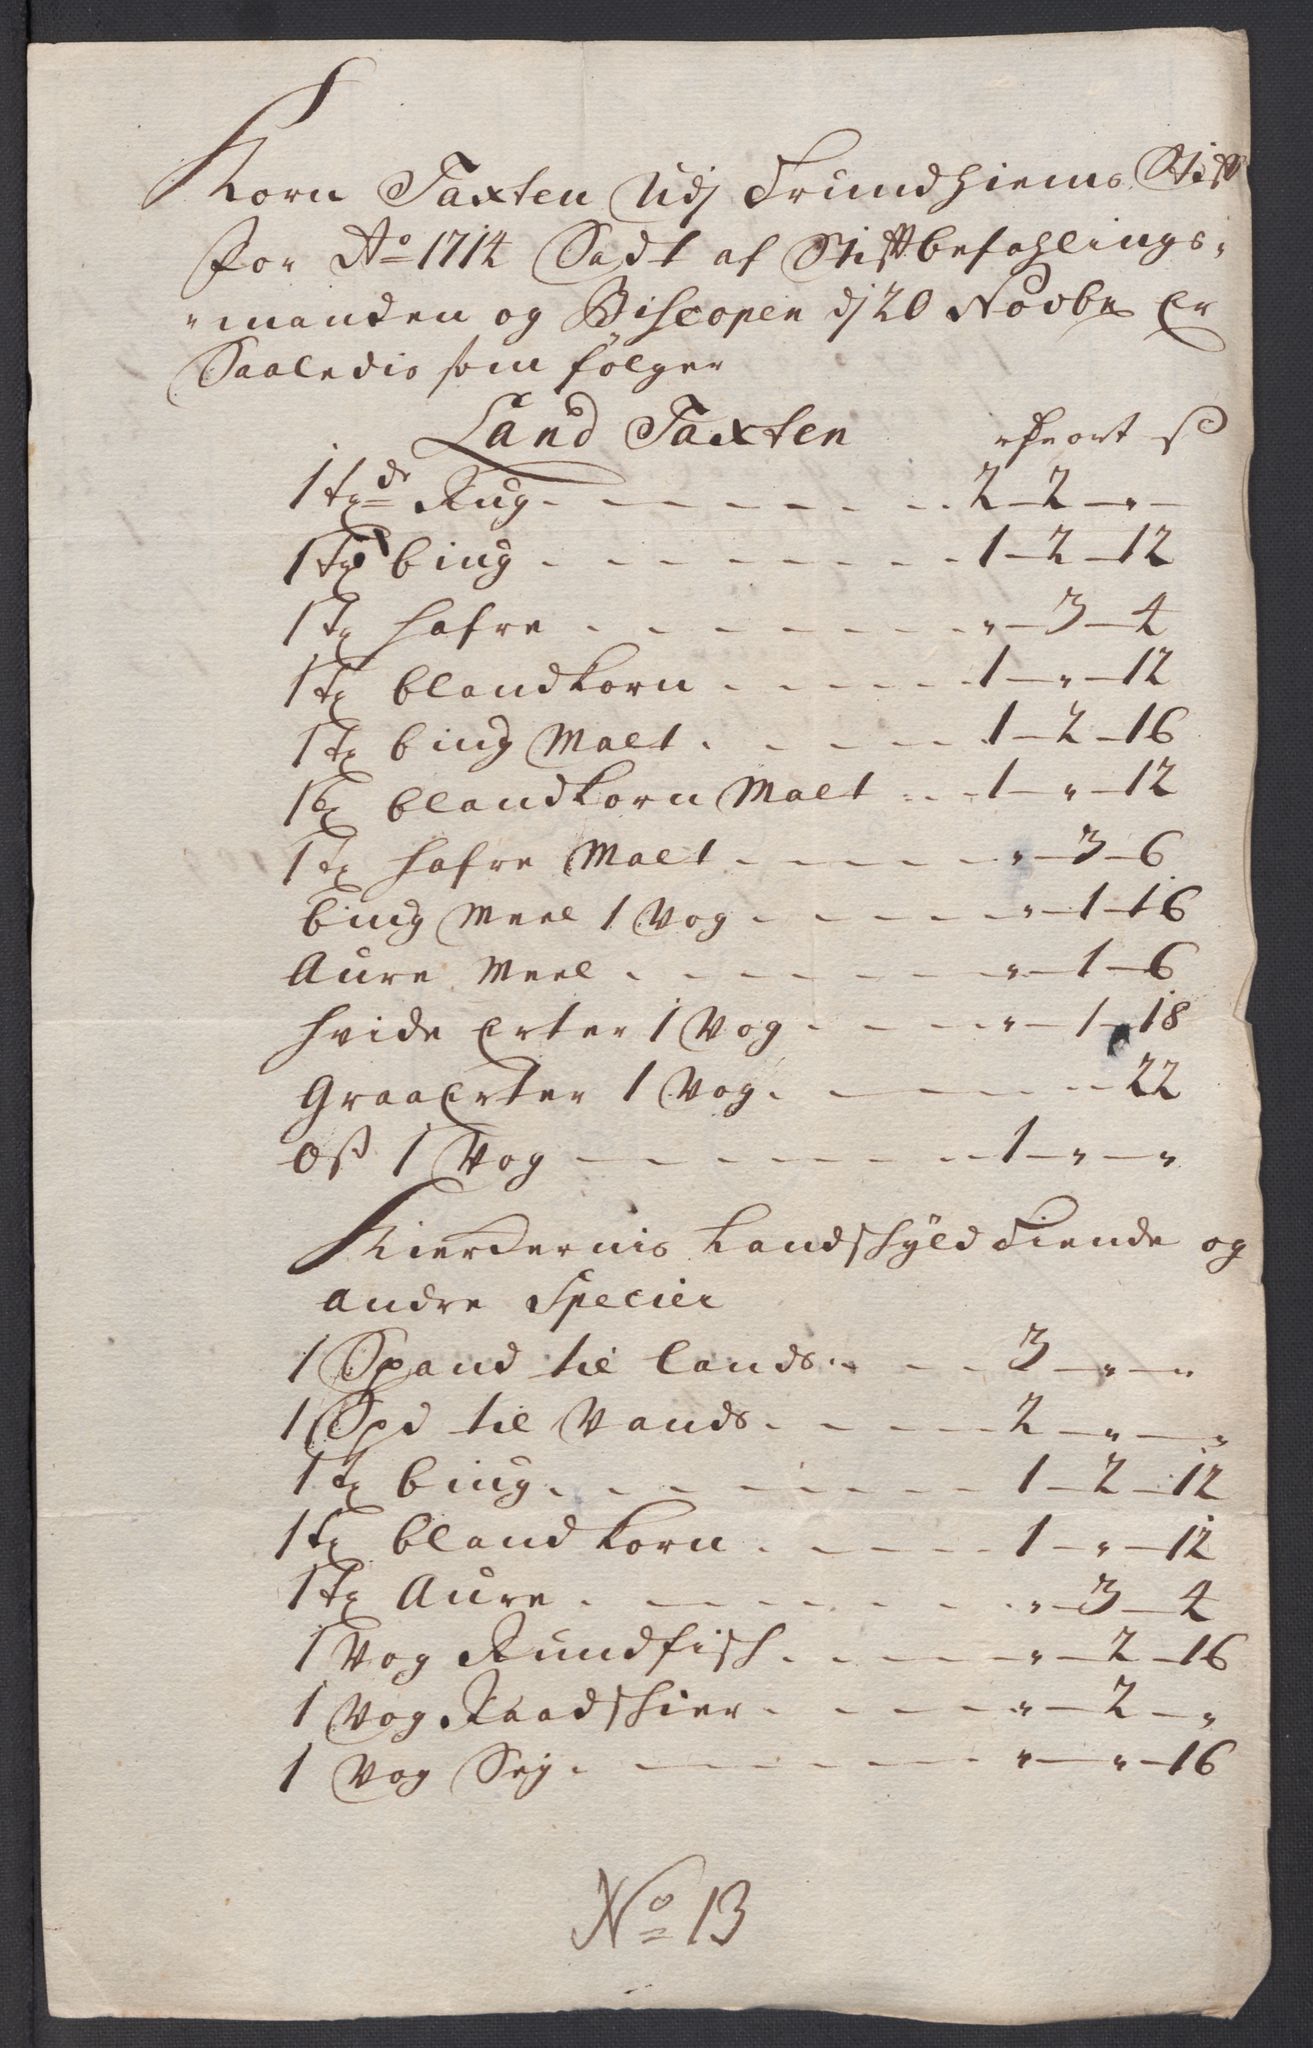 Korn Taxten Udj Trundhiems Stift
for Ao 1714 Sadt af Stiftbefahlings-
manden og Biscopen dj 20 Novbr Er
Saaledis som følger
Land Taxten ort s
1 tde Rug 2 - 2 - "
1 tø biug 1 - 2 - 12
1 tø hafre " - 3 - 4
1 tø blandkorn 1 - " - 12
1 tø biug Malt 1 - 2 - 16
1 tø blandkorn Malt 1 - " - 12
1 tø hafre Malt " - 3 - 6
biug Meel 1 Vog " - 1 - 16
Aure Meel " - 1 - 6
hvide Erter 1 Vog " - 1 - 18
Graa Erter 1 Vog 22
Ost 1 Vog 1 - " - "
Landskyld Tiende og
andre Specier
1 Spand til lands 3 - " - "
1 Spd til Vands 2 - " - "
1 tø biug 1 - 2 - 12
1 tø bland korn 1 - " - 12
1 tø Aure " - 3 - 4
1 Vog Rundfisch " - 2 - 16
1 Vog Raadskier " - 2 - "
1 Vog Sej " - " - 16
No 13